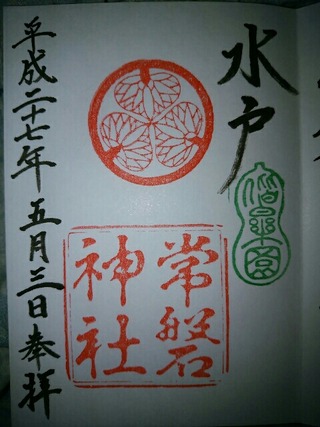 水戸
常磐
神社
平成二十七年 五月三日 奉拝